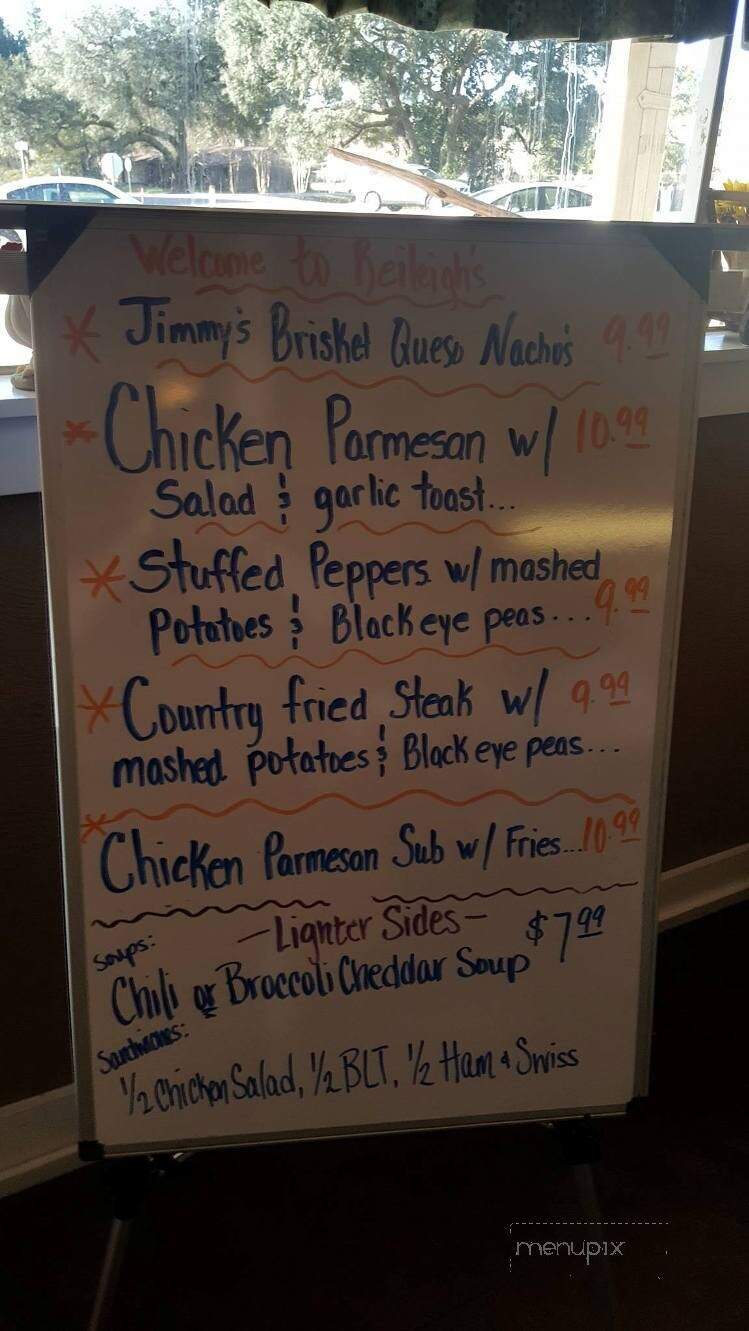 Welcome to Reileigh's
* Jimmy's Brisket Queso Nacho's 9.99
* Chicken Parmesan w/ 10.99
Salad & garlic toast...
* Stuffed Peppers w/ mashed
Potatoes & Black eye peas... 9.99
* Country fried Steak w/ 9.99
mashed potatoes & Black eye peas...
* Chicken Parmesan Sub w/ Fries... 10.99
-Lighter Sides- $7.99
Soups:
Chili or Broccoli Cheddar Soup
Sandwiches:
1/2 Chicken Salad, 1/2 BLT, 1/2 Ham & Swiss
menupix